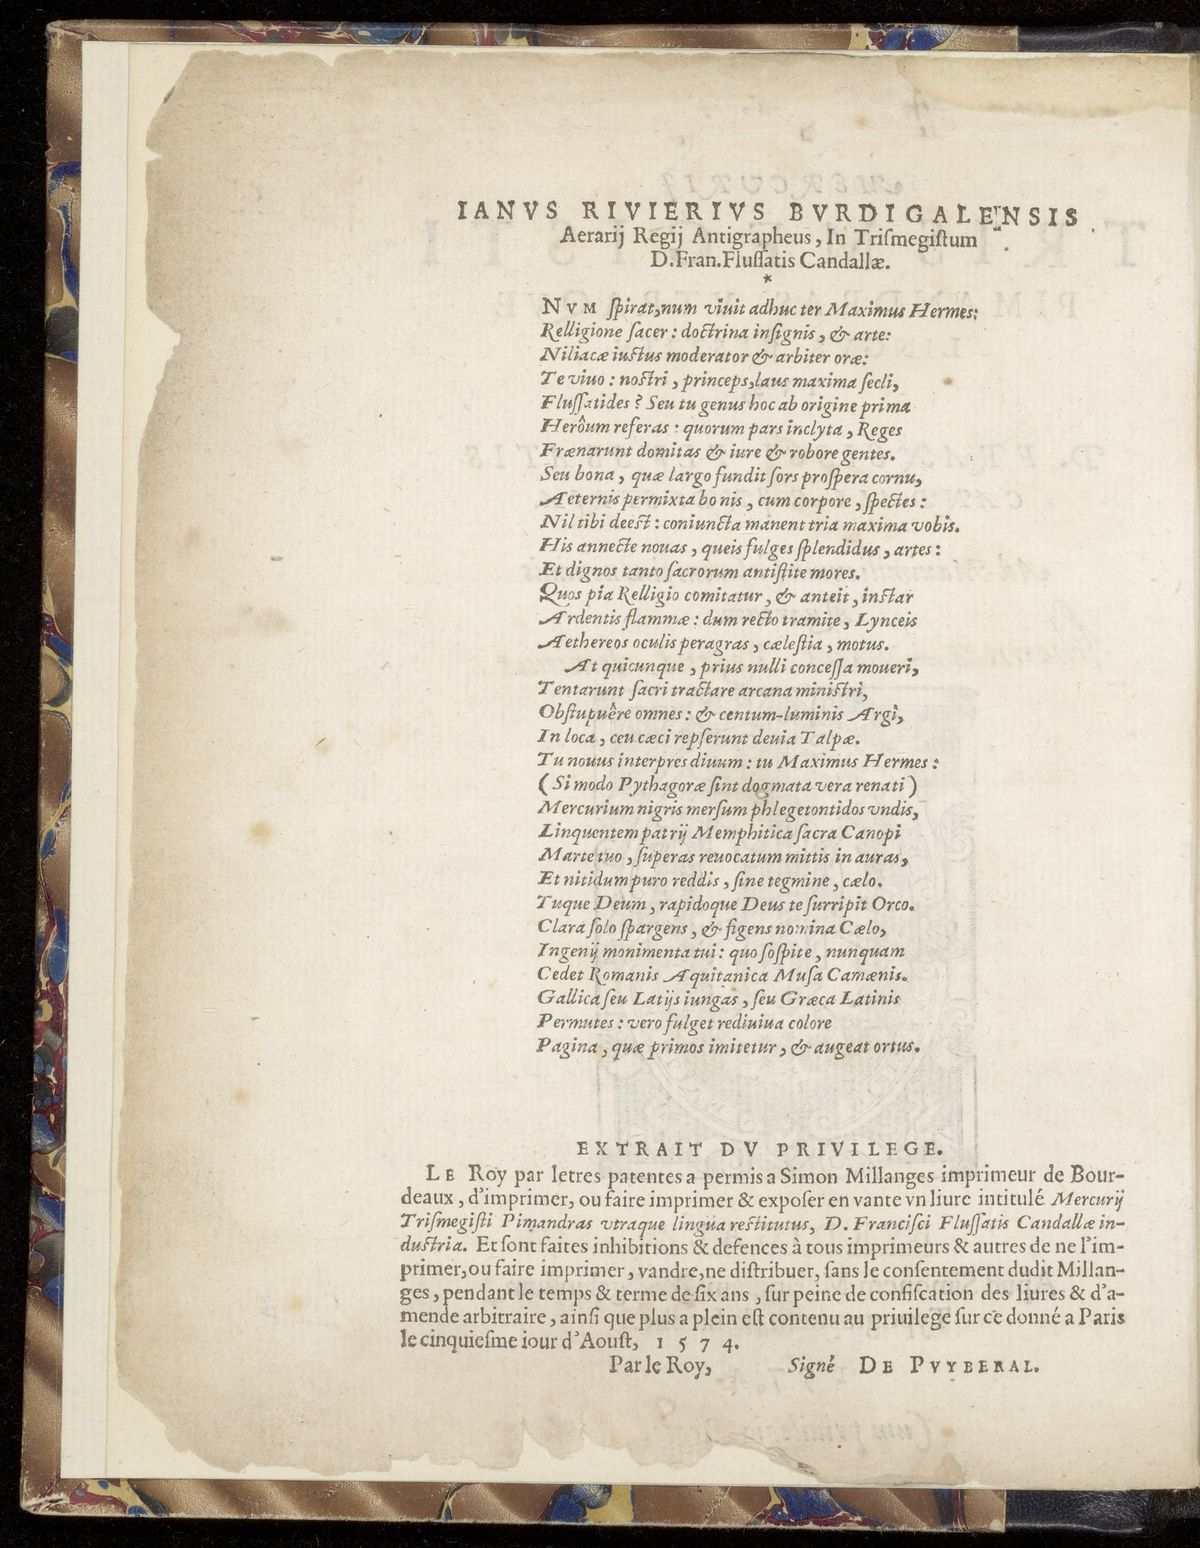 IANVS RIVIERIVS BVRDIGALENSIS
Aerarij Regij Antigrapheus, In Triſmegiſtum
D. Fran. Fluſſatis Candallæ.
*
NVM ſpirat, num viuit adhuc ter Maximus Hermes:
Relligione ſacer: doctrina inſignis, & arte:
Niliacæ iuctus moderator & arbiter oræ:
Te viuo: noſtri, princeps, laus maxima ſecli,
Fluſſatides? Seu tu genus hoc ab origine prima
Herôum referas: quorum pars inclyta, Reges
Frænarunt domitas & iure & robore gentes.
Seu bona, quæ largo fundit ſors proſpera cornu,
Aeternis permixta bonis, cum corpore, ſpectes:
Nil tibi deeſt: coniuncta manent tria maxima vobis.
His annecte nouas, queis fulges ſplendidus, artes:
Et dignos tanto ſacrorum antiſtite mores.
Quos pia Relligio comitatur, & anteit, inſtar
Ardentis flammæ: dum recto tramite, Lynceis
Aethereos oculis peragras, cæleſtia, motus.
At quicunque, prius nulli conceſſa moueri,
Tentarunt ſacri tractare arcana miniſtri,
Obſtupuêre omnes: & centum-luminis Argi,
In loca, ceu cæci repſerunt deuia Talpæ.
Tu nouus interpres diuum: tu Maximus Hermes:
(Si modo Pythagoræ ſint dogmata vera renati)
Mercurium nigris merſum phlegetontidos vndis,
Linquentem patrij Memphitica ſacra Canopi
Marte tuo, ſuperas reuocatum mittis in auras,
Et nitidum puro reddis, ſine tegmine, cælo.
Tuque Deum, rapidoque Deus te ſurripit Orco.
Clara ſolo ſpargens, & figens nomina Cælo,
Ingenij monimenta tui: quo ſoſpite, nunquam
Cedet Romanis Aquitanica Muſa Camænis.
Gallica ſeu Latijs iungas, ſeu Græca Latinis
Permutes: vero fulget rediuiua colore
Pagina, quæ primos imitetur, & augeat ortus.
EXTRAIT DV PRIVILEGE.
LE Roy par letres patentes a permis a Simon Millanges imprimeur de Bour-
deaux, d'imprimer, ou faire imprimer & expoſer en vante vn liure intitulé Mercurij
Triſmegiſti Pimandras vtraque lingua reſtitutus, D. Franciſci Fluſſatis Candallæ in-
duſtria. Et ſont faites inhibitions & defences à tous imprimeurs & autres de ne l'im-
primer, ou faire imprimer, vandre, ne diſtribuer, ſans le conſentement dudit Millan-
ges, pendant le temps & terme de ſix ans, ſur peine de confiſcation des liures & d'a-
mende arbitraire, ainſi que plus a plein eſt contenu au priuilege ſur ce donné a Paris
le cinquieſme iour d'Aouſt, 1574.
Par le Roy, Signé DE PVYBERAL.